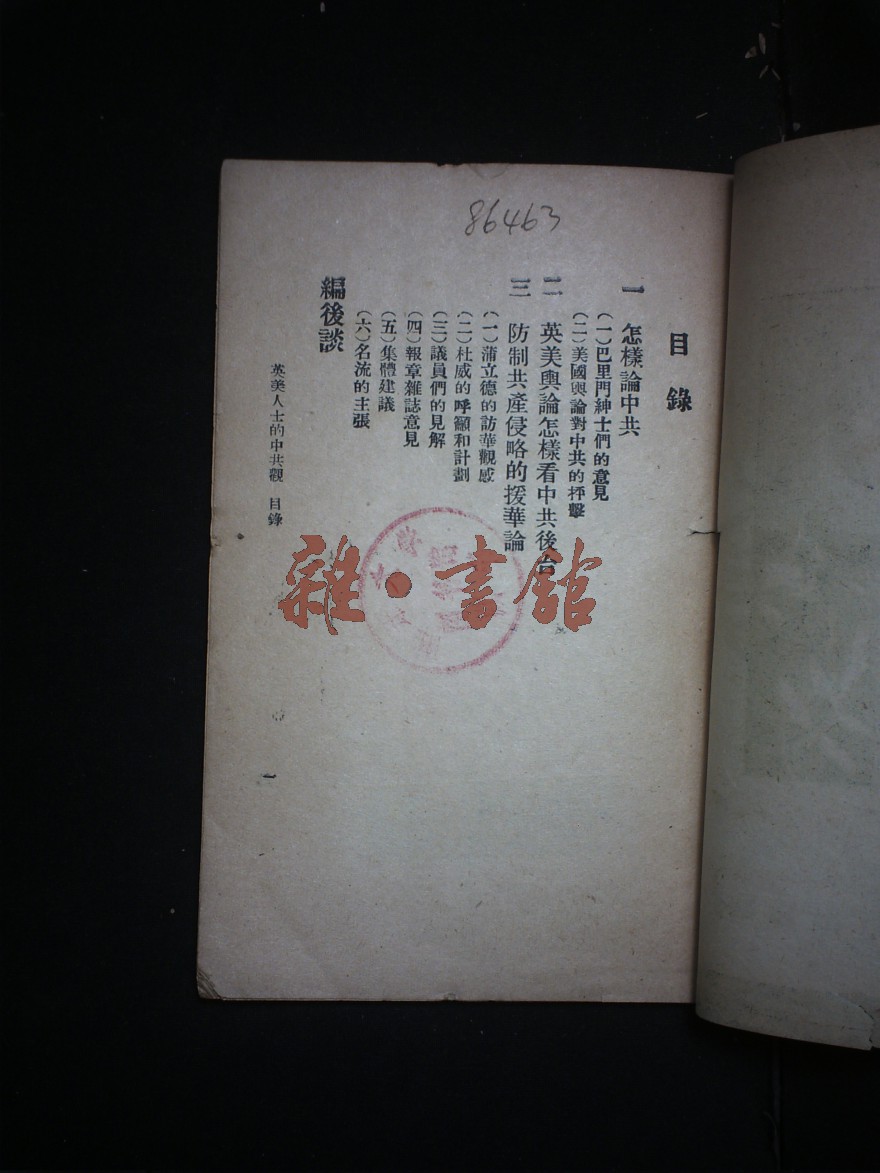 86463
目錄
一 怎樣論中共
（一）巴里門紳士們的意見
（二）美國輿論對中共的抨擊
二 英美輿論怎樣看中共後台
三 防制共產侵略的援華論
（一）蒲立德的訪華觀感
（二）杜威的呼籲和計劃
（三）議員們的見解
（四）報章雜誌意見
（五）集體建議
（六）名流的主張
編後談
英美人士的中共觀 目錄
一
雜·書館